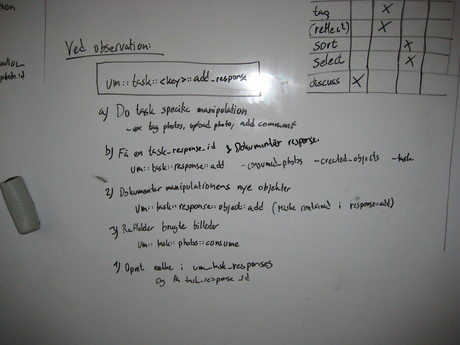 Ved observation:
um::task::<key>::add_response
a) Do task specific manipulation
- ex tag photos, upload photo, add comment
b) Få en task_response_id & Dokumentér response:
um::task::response::add -consumed_photos -created_objects -task
2) Dokumenter manipulationens nye objekter
um::task::response::object::add (måske contained i response::add)
3) brugte billeder
um::task::photos::consume
1) Opret række i um_task_responses
og få task_response_id
tag X
(reflect) X
sort X
select X
discuss X
photo_id